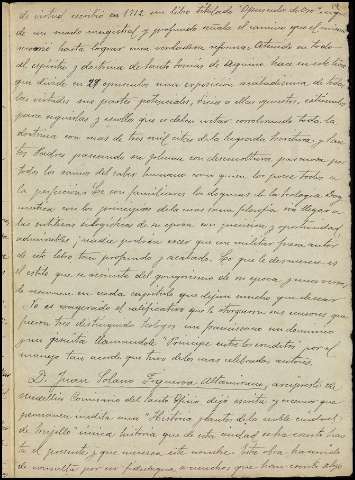 de virtud escribió en 1712 un libro titulado "Opusculos de Oro"
de un modo magistral y profundo señala el camino que el
hasta lograr una verdadera reforma. Atento en todo
al espíritu y doctrina de Santo Tomás de Aquino hace en este libro
que divide en 27 opusculos una exposición acabadísima de todas
las virtudes sus partes potenciales, vicios a ellas opuestos, estímulos
para seguirlas y escollos que se deben evitar corroborando toda la
doctrina con mas de tres mil citas de la Sagrada Escritura y San-
tos Padres paseando su pluma con desenvoltura por
todos los ramos del saber humano como quien los posee todos a
la perfección. Le son familiares los dogmas de la teología Dog-
mática con los principios de la mas sana filosofía sin llegar a
las sutilezas silogísticas de su época con precisión y oportunidad
admirables; nadie podría creer que un militar fuera autor
de este libro tan profundo y acabado. Lo que le desmerece es
el estilo que se resiente del gongorismo de su época, y unos versos
de resumen en cada capítulo que dejan mucho que desear
No es exagerado el calificativo que le otorgaron sus censores que
fueron tres distinguidos teólogos un franciscano un dominico
y un jesuita llamandole "Principe entre los eruditos" por el
manejo tan acertado que tuvo de los mas celebrados autores.
D. Juan Solano Figueroa Altamirano, arcipreste de
Medellín Comisario del Santo Oficio dejó escrita y
permanece inédita una "Historia
de Trujillo" única historia que de esta ciudad se ha escrito has-
ta el presente y que merezca este nombre. Esta obra ha servido
de consulta por su fidedigna a muchos que han escrito algo